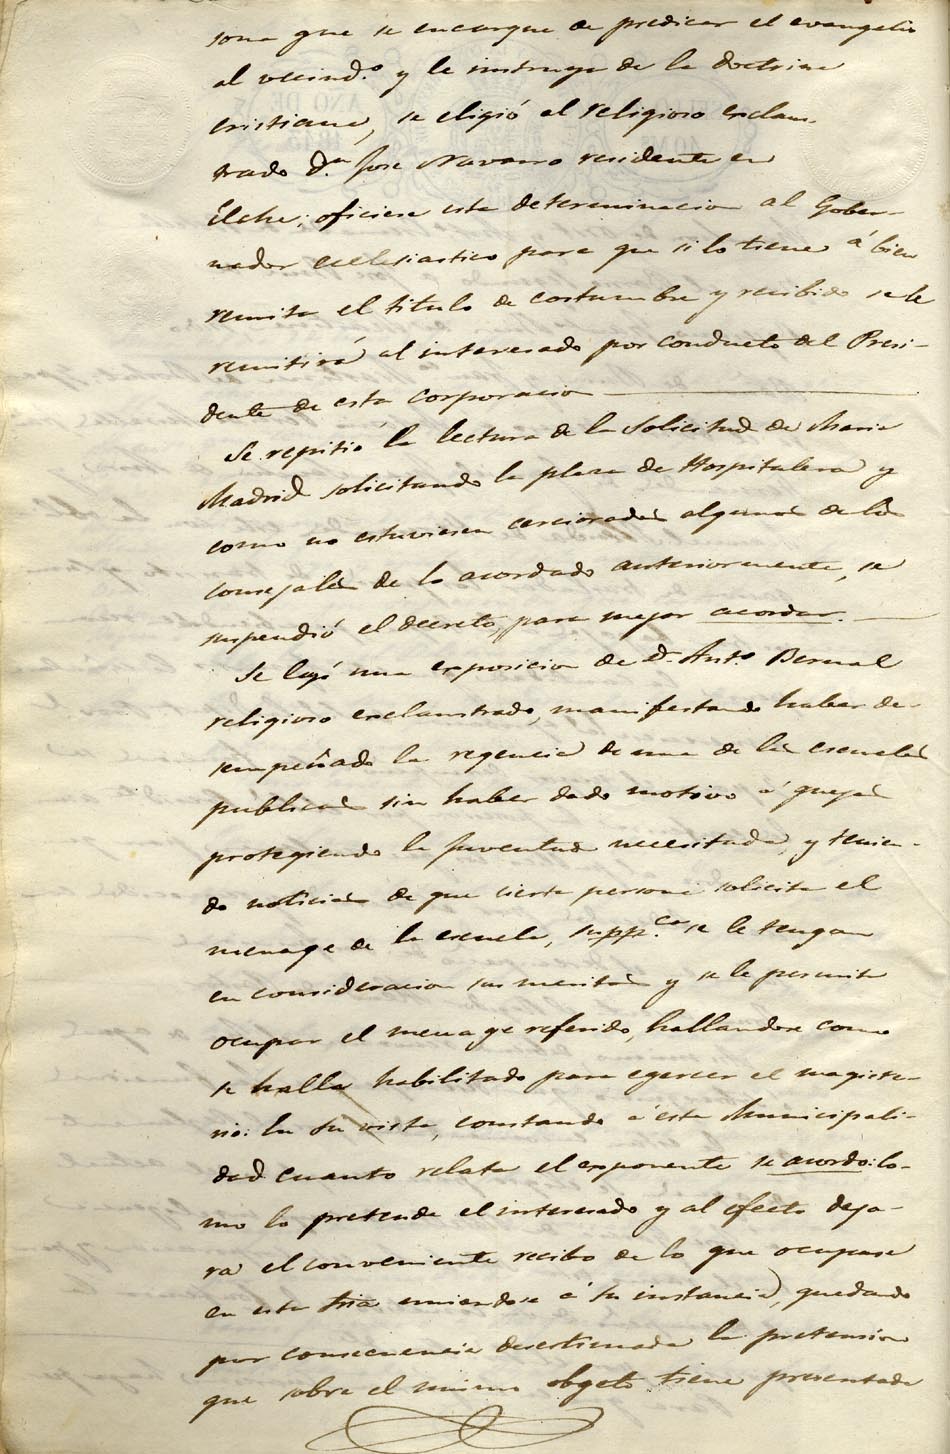 sona que se encargue de predicar el evangelio
al vecind.º y le instruya de la doctrina
cristiana, se eligió al religioso exclaus-
trado D.n Jose Navarro residente en
Elche; oficiese esta determinacion al Gober-
nador eclesiastico para que si lo tiene á bien
remita el titulo de costumbre y recibido se le
remitirá al interesado por conducto del Presi-
dente de esta corporacion
Se repitió la lectura de la solicitud de Maria
Madrid solicitando la plaza de Hospitalera y
como no estuviesen cerciorados algunos de los
consejales de lo acordado anteriormente, se
suspendió el decreto, para mejor acordar.
Se leyó una exposicion de D. Ant.º Bernal
religioso exclaustrado, manifestando haber de-
sempeñado la regencia de una de las escuelas
publicas sin haber dado motivo á quejas
protegiendo la juventud necesitada, y tenien-
do noticias de que cierta persona solicita el
menage de la escuela, supp.ca se le tengan
en consideracion sus meritos y se le permita
ocupar el menage referido, hallandose como
se halla habilitado para egercer el magiste-
rio: En su vista, constando á esta Municipali-
dad cuanto relata el exponente se acordo: Co-
mo lo pretende el interesado y al efecto deja-
ra el conveniente recibo de lo que ocupase
en esta Sria uniendose á su instancia, quedando
por consecuencia desestimada la pretension
que sobre el mismo obgeto tiene presentada